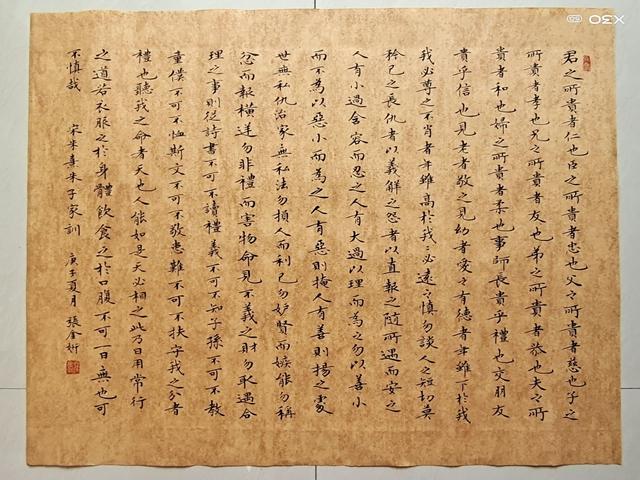 君之所貴者仁也臣之所貴者忠也父々所貴者慈也子之
所貴者孝也兄之所貴者友也弟之所貴者恭也夫々所
貴者和也婦之所貴者柔也事師長貴乎禮也交朋友
貴乎信也見老者敬之見幼者愛々有德者年雖下於我
我必尊之不肖者年雖高於我々必遠々慎勿談人之短切莫
矜己之長仇者以義解之怨者以直報之隨所遇而安之
人有小過含容而忍之人有大過以理而為之勿以善小
而不為以惡小而為之人有惡則掩人有善則揚之處
世無私仇治家無私法勿損人而利己勿妒賢而嫉能勿稱
忿而報橫逆勿非禮而害物命見不義之財勿取遇合
理之事則從詩書不可不讀禮義不可不知子孫不可不教
童僕不可不恤斯文不可不敬患難不可不扶守我之分者
禮也聽我之命者天也人能如是天必相之此乃日用常行
之道若衣服之於身體飲食之於口腹不可一日無也可
不慎哉 宋朱熹朱子家訓 庚子夏月 張金妍